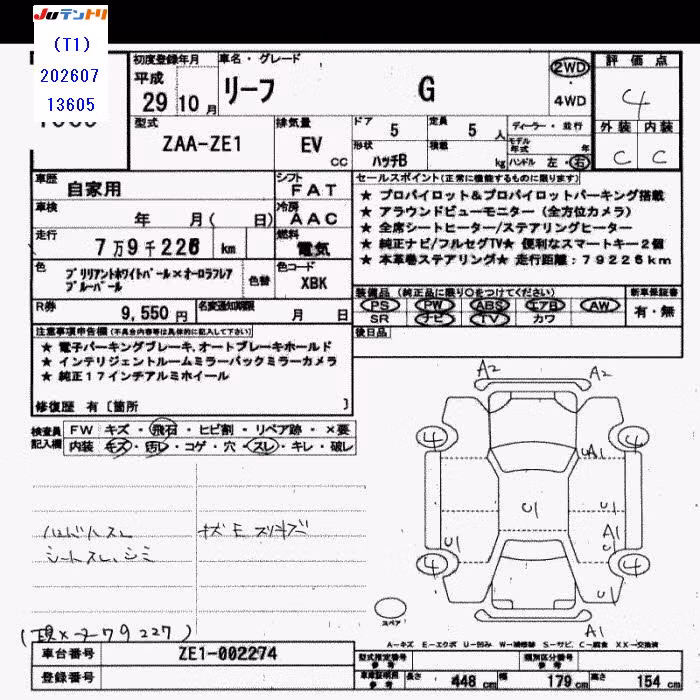 Juテントリ
(T1)
202607
13605
初度登録年月
平成
29年10月
車名・グレード
リーフ G
2WD
・
4WD
評価点
4
外装 内装
C C
型式
ZAA-ZE1
排気量
EV
CC
ドア 5
定員 5人
形状 ハッチB
積載 kg
ディーラー・並行
モデル年式 年
ハンドル 左・右
車歴 自家用
シフト FAT
車検 年 月( 日)
冷房 AAC
走行 7万9千226 km
燃料 電気
色 ブリリアントホワイトパール×オーロラフレアブルーパール
色替
色コード XBK
R券 9,550円
名変通知期限 月 日
セールスポイント(正常に機能するものに限ります)
★ プロパイロット&プロパイロットパーキング搭載
★ アラウンドビューモニター(全方位カメラ)
★ 全席シートヒーター/ステアリングヒーター
★ 純正ナビ/フルセグTV★ 便利なスマートキー2個
★ 本革巻ステアリング★ 走行距離:79226km
装備品(純正品に限り○をつけてください)
新車保証書
PS PW ABS エアB AW
SR ナビ TV カワ
有・無
後日品
注意事項申告欄(不具合内容等は具体的に記入して下さい)
★ 電子パーキングブレーキ、オートブレーキホールド
★ インテリジェントルームミラーバックミラーカメラ
★ 純正17インチアルミホイール
修復歴 有〔箇所 〕
検査員記入欄
FW キズ・飛石・ヒビ割・リペア跡・×要
内装 キズ・汚レ・コゲ・穴・スレ・キレ・破レ
ハンドルスレ
シートスレ、シミ
A2 A2
4 4
UA1
U1
U1
A1
U
U1
4 4
U1
A1
スペア
(現メーター79227)
A-キズ E-エクボ U-凹み W-補修跡 S-サビ C-腐食 XX-交換済
車台番号 ZE1-002274
登録番号
型式指定番号 参考
類別区分番号 参考
車庫証明用 参考
長さ 448cm 幅 179cm 高さ 154cm